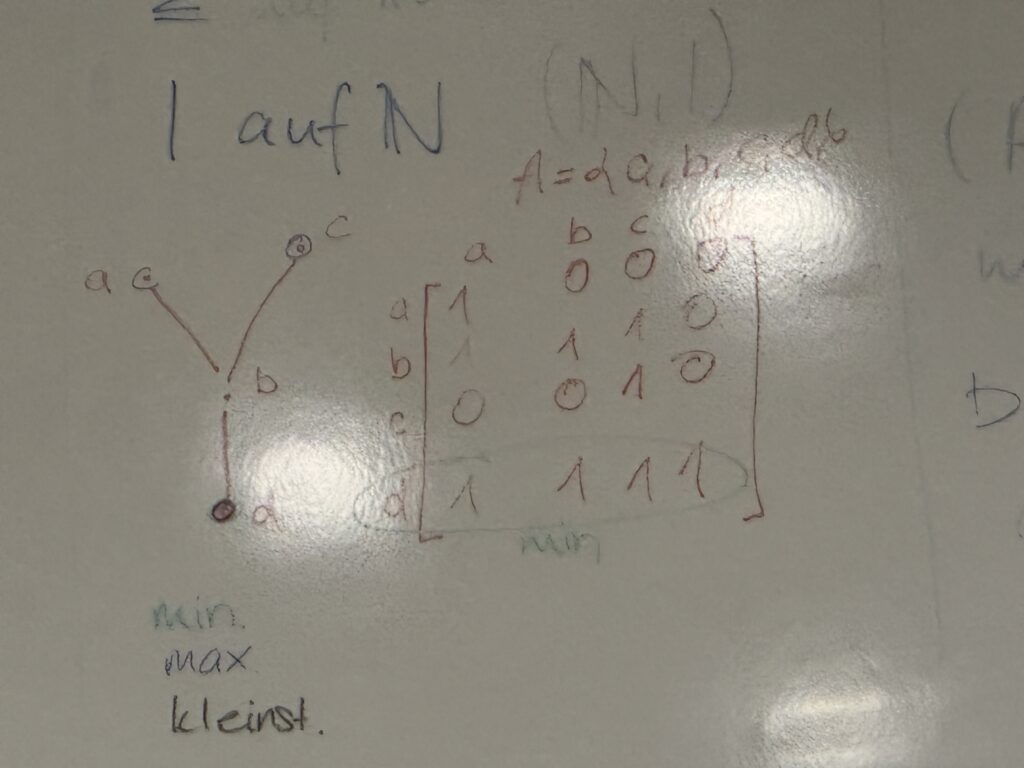 | auf ℕ (ℕ, |)
A = {a, b, c, d}
a c b d
b c
a
a 1 0 0 0
b 1 1 1 0
c 0 0 1 0
d 1 1 1 1
min
min.
max.
kleinst.
D